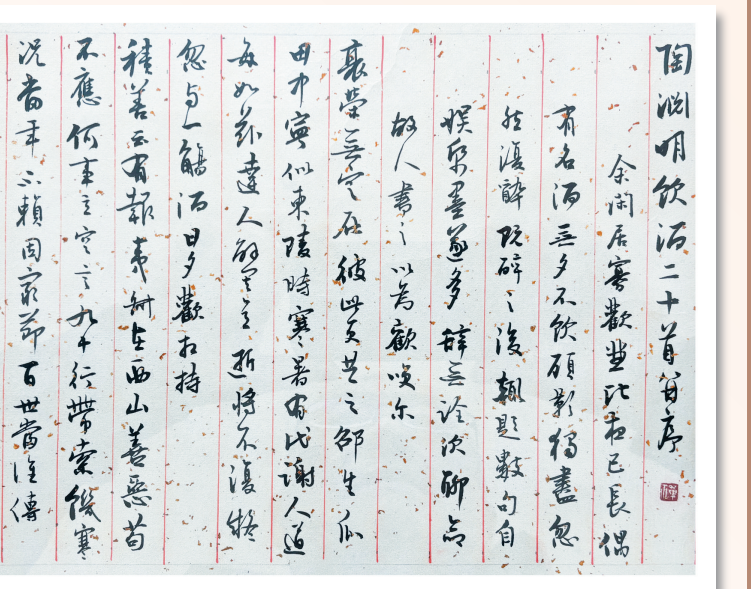 陶淵明飲酒二十首并序
余閑居寡歡兼比夜已長偶
有名酒無夕不飲顧影獨盡忽
然復醉既醉之後輒題數句自
娛紙墨遂多辭無詮次聊命
故人書之以為歡笑尔
衰榮無定在彼此更共之邵生瓜
田中寧似東陵時寒暑有代謝人道
每如茲達人解其會逝將不復疑
忽與一觴酒日夕歡相持
積善云有報夷叔在西山善惡苟
不應何事立空言九十行帶索飢寒
況當年不賴固窮節百世當誰傳